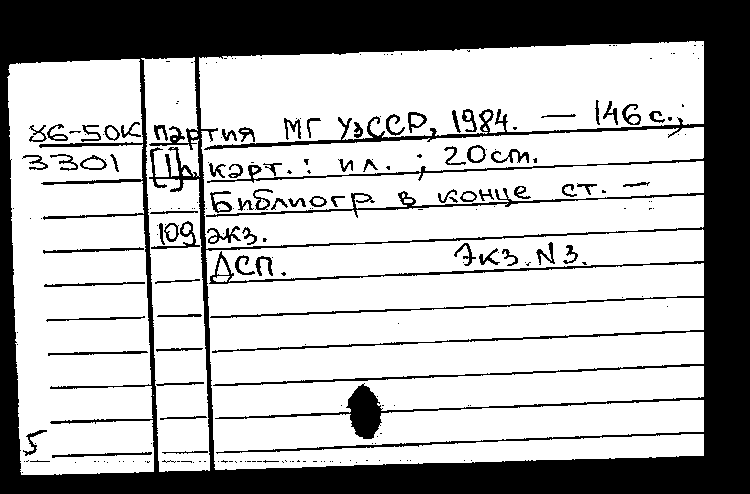 86-50К партия МГ УзССР, 1984. — 146 с.;
3301 [1]л. карт.: ил.; 20 cm.
Библиогр. в конце ст. —
109 экз.
ДСП. Экз. N 3.
5